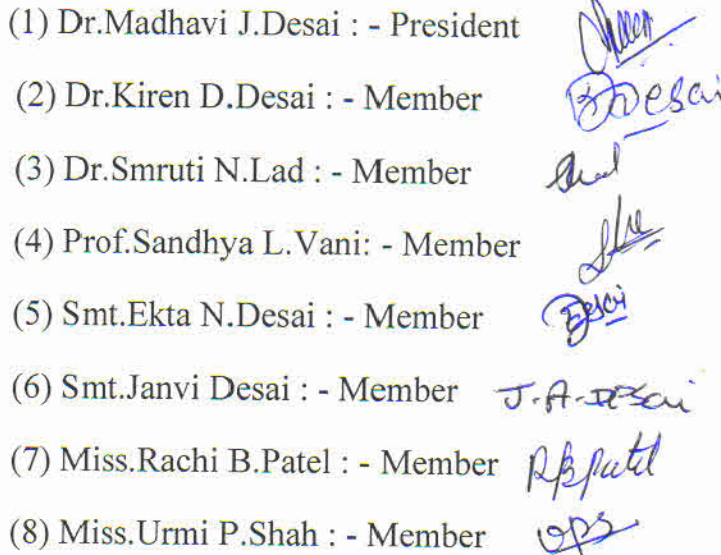 (1) Dr.Madhavi J.Desai : - President
(2) Dr.Kiren D.Desai : - Member Desai
(3) Dr.Smruti N.Lad : - Member
(4) Prof.Sandhya L.Vani: - Member
(5) Smt.Ekta N.Desai : - Member Desai
(6) Smt.Janvi Desai : - Member J.A.Desai
(7) Miss.Rachi B.Patel : - Member RBPatel
(8) Miss.Urmi P.Shah : - Member